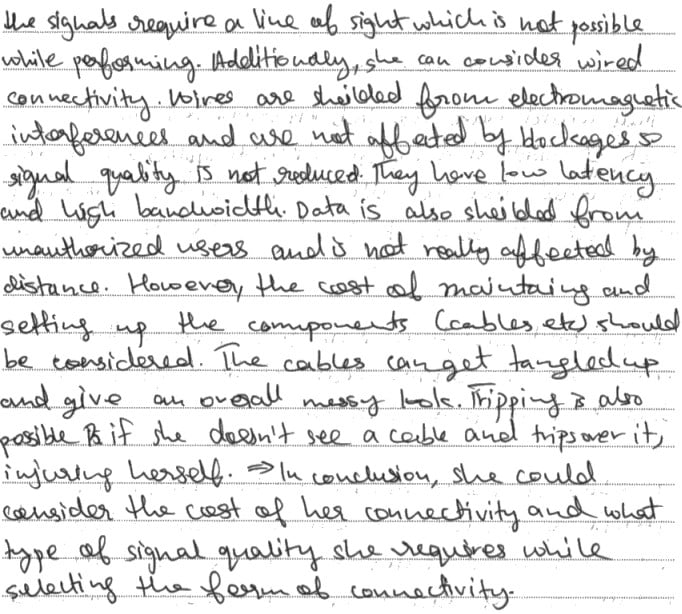 the signals require a line of sight which is not possible
while performing. Additionally, she can consider wired
connectivity. Wires are sheilded from electromagnetic
interferences and are not affected by blockages so
signal quality is not reduced. They have low latency
and high bandwidth. Data is also sheilded from
unauthorized users and is not really affected by
distance. However, the cost of maintaing and
setting up the components (cables etc) should
be considered. The cables can get tangled up
and give an overall messy look. Tripping is also
possible if she doesn't see a cable and trips over it,
injuring herself. ⇒ In conclusion, she could
consider the cost of her connectivity and what
type of signal quality she requires while
selecting the form of connectivity.